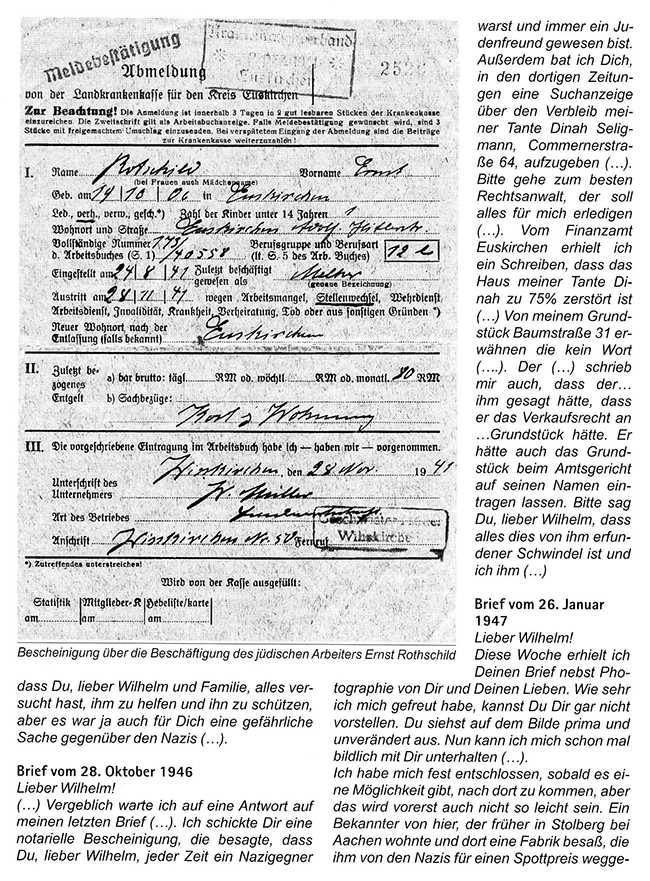 Meldebestätigung
Abmeldung
2526
von der Landkrankenkasse für den Kreis Euskirchen
Zur Beachtung! Die Anmeldung ist innerhalb 3 Tagen in 2 gut lesbaren Stücken der Krankenkasse
einzureichen. Die Zweitschrift gilt als Arbeitsbuchanzeige. Falls Meldebestätigung gewünscht wird, sind 3
Stücke mit freigemachtem Umschlag einzusenden. Bei verspätetem Eingang der Abmeldung sind die Beiträge
zur Krankenkasse weiterzuzahlen!
I. Name Rotschild Vorname Ernst
(bei Frauen auch Mädchenname)
Geb. am 19/10/06 in Euskirchen
Led., verh., verw., gesch.*) Zahl der Kinder unter 14 Jahren 1
Wohnort und Straße Euskirchen Adolf Hitlerstr.
Vollständige Nummer 173/ Berufsgruppe und Berufsart
d. Arbeitsbuches (S. 1) /40558 (lt. S. 5 des Arb. Buches)
Eingestellt am 24/8/41 Zuletzt beschäftigt gewesen als Melker
(genaue Bezeichnung)
Austritt am 28/11/41 wegen Arbeitsmangel, Stellenwechsel, Wehrdienst
Arbeitsdienst, Invalidität, Krankheit, Verheiratung, Tod oder aus sonstigen Gründen *)
Neuer Wohnort nach der
Entlassung (falls bekannt) Euskirchen
II. Zuletzt be-
zogenes a) bar brutto: tägl. RM od. wöchtl. RM od. monatl. 80 RM
Entgelt b) Sachbezüge:
Kost u Wohnung
III. Die vorgeschriebene Eintragung im Arbeitsbuch habe ich — haben wir — vorgenommen.
Wisskirchen, den 28 Nov. 1941
Unterschrift des
Unternehmers W. Müller
Art des Betriebes
Anschrift Wisskirchen No. 50 Fernruf
*) Zutreffendes unterstreichen!
Wird von der Kasse ausgefüllt:
Statistik Mitglieder-K Hebeliste/karte
am am am
Bescheinigung über die Beschäftigung des jüdischen Arbeiters Ernst Rothschild
dass Du, lieber Wilhelm und Familie, alles ver-
sucht hast, ihm zu helfen und ihn zu schützen,
aber es war ja auch für Dich eine gefährliche
Sache gegenüber den Nazis (…).
Brief vom 28. Oktober 1946
Lieber Wilhelm!
(…) Vergeblich warte ich auf eine Antwort auf
meinen letzten Brief (…). Ich schickte Dir eine
notarielle Bescheinigung, die besagte, dass
Du, lieber Wilhelm, jeder Zeit ein Nazigegner
warst und immer ein Ju-
denfreund gewesen bist.
Außerdem bat ich Dich,
in den dortigen Zeitun-
gen eine Suchanzeige
über den Verbleib mei-
ner Tante Dinah Selig-
mann, Commernerstra-
ße 64, aufzugeben (…).
Bitte gehe zum besten
Rechtsanwalt, der soll
alles für mich erledigen
(…). Vom Finanzamt
Euskirchen erhielt ich
ein Schreiben, dass das
Haus meiner Tante Di-
nah zu 75% zerstört ist
(…) Von meinem Grund-
stück Baumstraße 31 er-
wähnen die kein Wort
(….). Der (…) schrieb
mir auch, dass der…
ihm gesagt hätte, dass
er das Verkaufsrecht an
…Grundstück hätte. Er
hätte auch das Grund-
stück beim Amtsgericht
auf seinen Namen ein-
tragen lassen. Bitte sag
Du, lieber Wilhelm, dass
alles dies von ihm erfun-
dener Schwindel ist und
ich ihm (…)
Brief vom 26. Januar
1947
Lieber Wilhelm!
Diese Woche erhielt ich
Deinen Brief nebst Pho-
tographie von Dir und Deinen Lieben. Wie sehr
ich mich gefreut habe, kannst Du Dir gar nicht
vorstellen. Du siehst auf dem Bilde prima und
unverändert aus. Nun kann ich mich schon mal
bildlich mit Dir unterhalten (…).
Ich habe mich fest entschlossen, sobald es ei-
ne Möglichkeit gibt, nach dort zu kommen, aber
das wird vorerst auch nicht so leicht sein. Ein
Bekannter von hier, der früher in Stolberg bei
Aachen wohnte und dort eine Fabrik besaß, die
ihm von den Nazis für einen Spottpreis wegge-